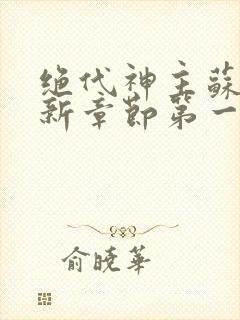 绝代神主蘇
新章節第一
俞曉華